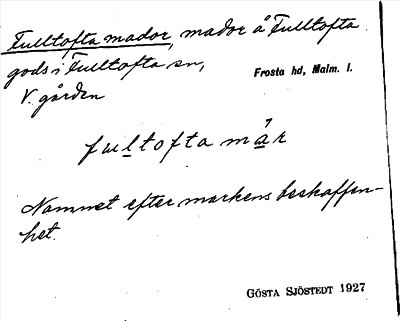 Fulltofta mador, mador å Fulltofta
gods i Fulltofta sn,
Frosta hd, Malm. l.
V. gården
fultofta mår
Namnet efter markens beskaffen-
het.
GÖSTA SJÖSTEDT 1927